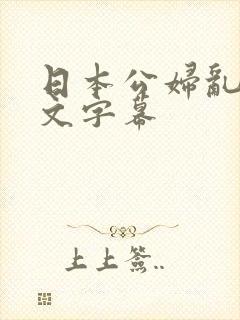 日本公婦亂
文字幕
上上签..